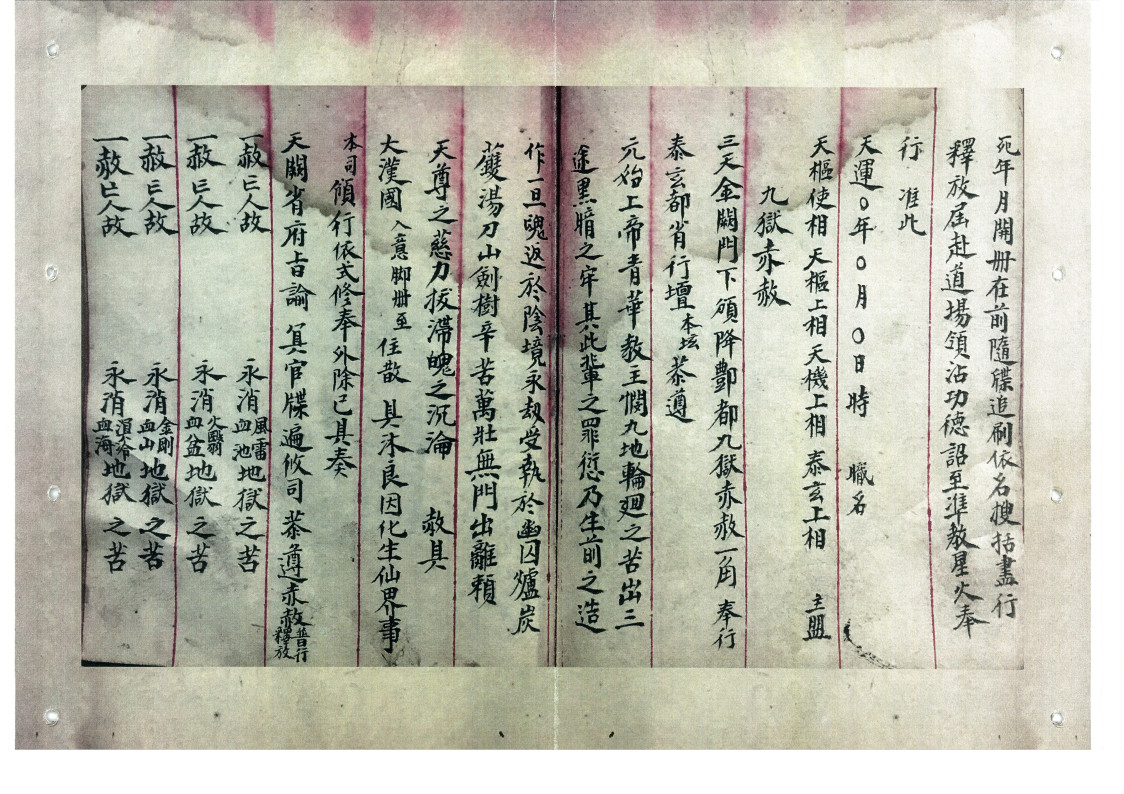 死年月開册在前隨牒追刷依名搜括盡行
釋放屆赴道場領沾功德詔至準教星火奉
行 准此
天運〇年〇月〇日時 職名
天樞使相 天樞上相 天機上相 泰玄上相 主盟
九獄赤赦
三天金闕門下頒降酆都九獄赤赦一角 奉行
泰玄都省行壇本壇 恭遵
元始上帝青華教主憫九地輪廻之苦出三
途黑暗之牢其此輩之罪愆乃生前之造
作一旦魄返於陰境永劫受執於幽囚爐炭
鑊湯刀山劍樹辛苦萬壯無門出離賴
天尊之慈力拔滯魄之沉淪 赦具
大漢國 入意脚册至 住散 具沐良因化生仙界事
本司傾行依式修奉外除已具奏
天闕省府占論 冥官牒遍攸司 恭遵赤赦普行釋放
一赦亡人故 永消風雷血池地獄之苦
一赦亡人故 永消火翳血盆地獄之苦
一赦亡人故 永消金剛血山地獄之苦
一赦亡人故 永消溟泠血海地獄之苦